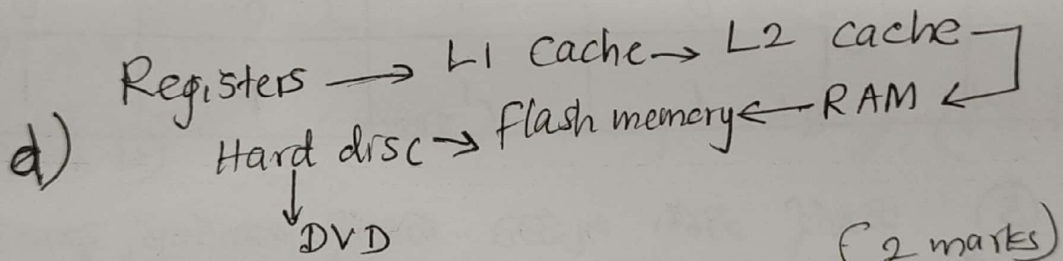 Registers → L1 cache → L2 cache
d) Hard disc → flash memory ← RAM
DVD
(2 marks)